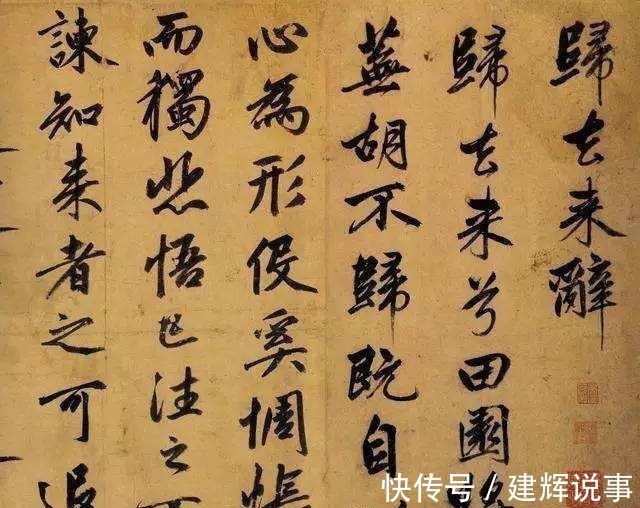 歸去来辭
歸去来兮田園
蕪胡不歸既自
心為形伇奚惆悵
而獨悲悟已注之
諫知来者之可追
快传号/建辉说事